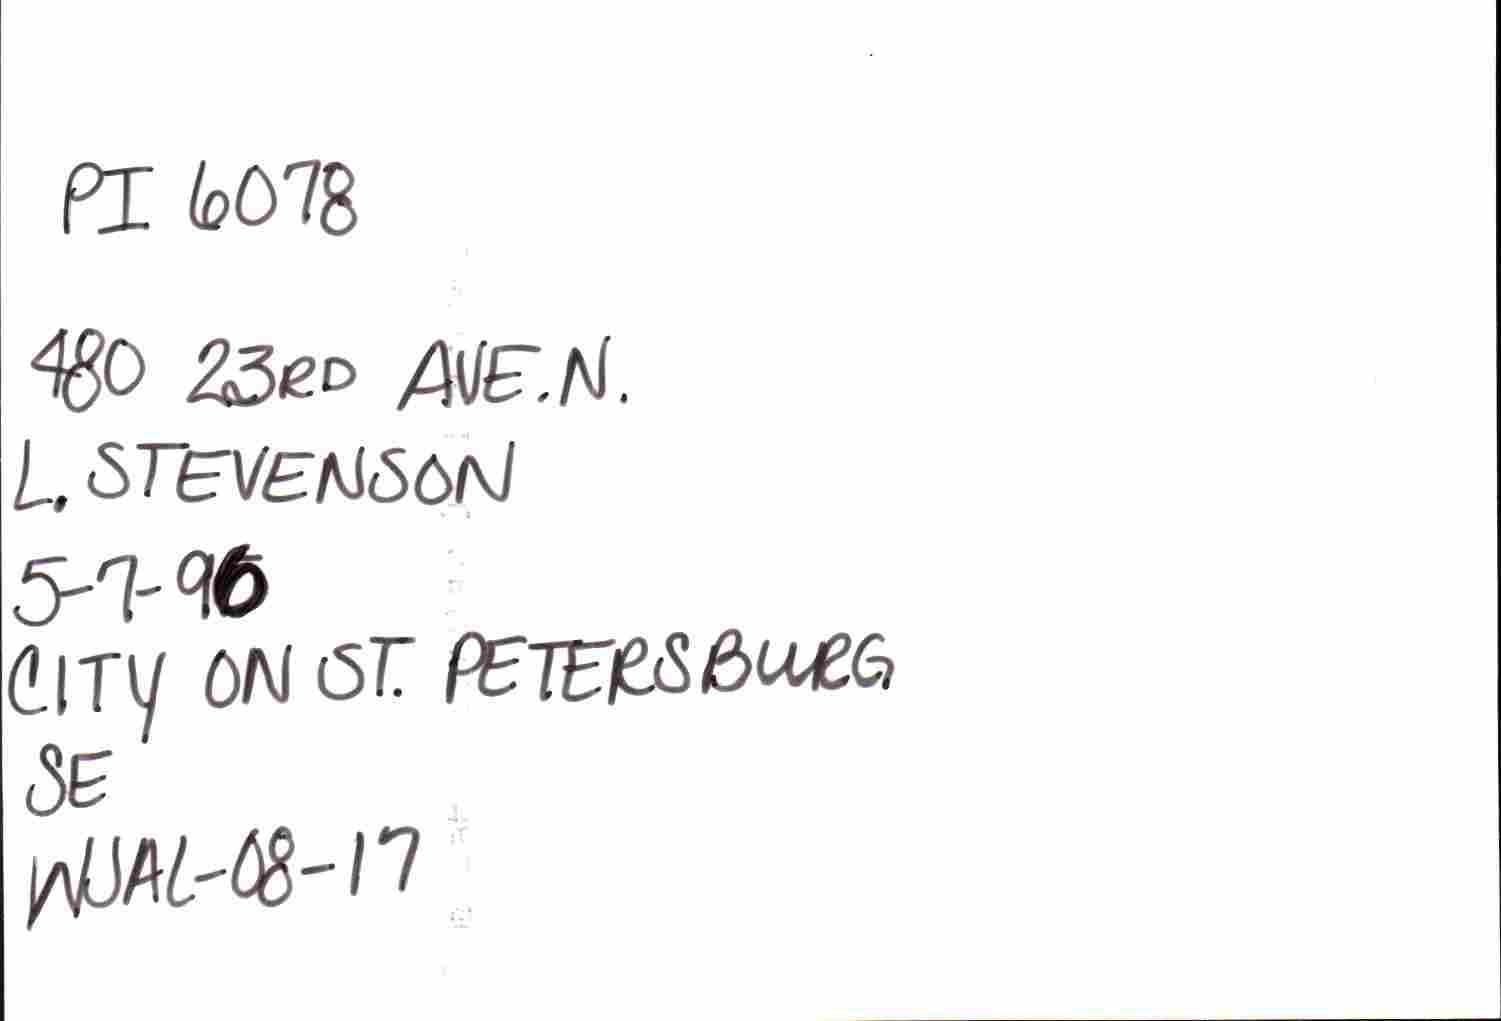 PI 6078
480 23RD AVE. N.
L. STEVENSON
5-7-96
CITY ON ST. PETERSBURG
SE
NUAL-08-17